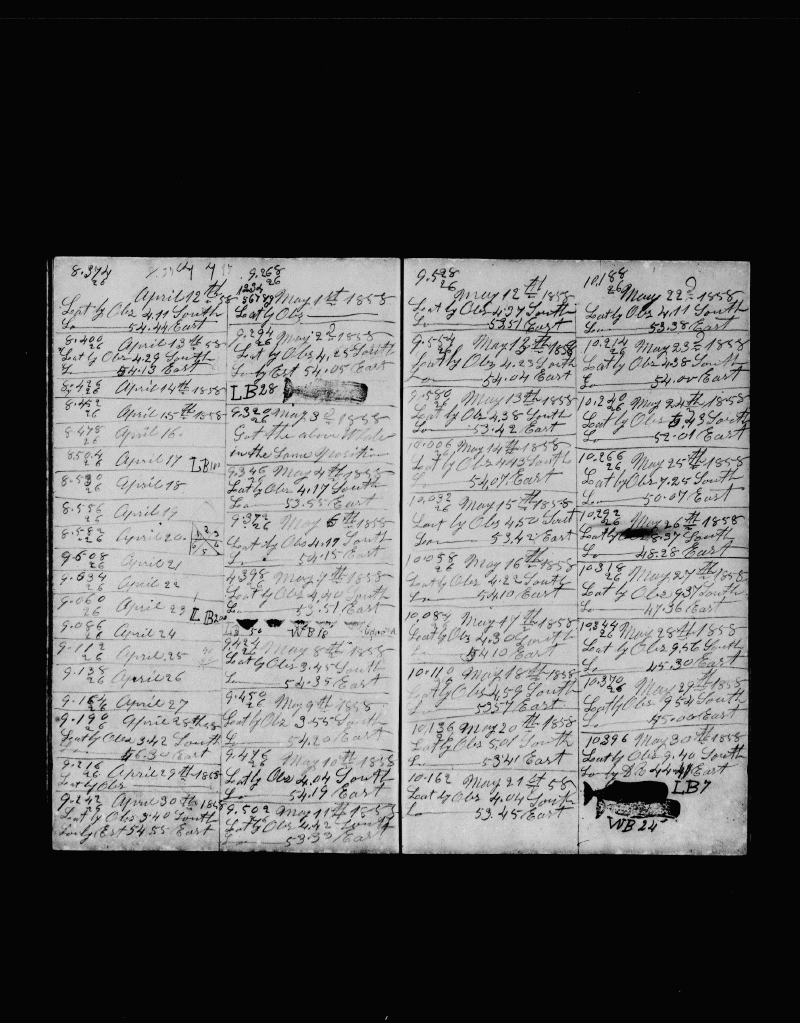 8.374
26
April 12th 58
Lat by Obs 4.11 South
Lo 54.44 East
8.400
26
April 13th 58
Lat by Obs 4.29 South
Lo 54.13 East
8.426
26
April 14th 1858
8.452
26
April 15th 1858
8.478
26
April 16
8.504
26
April 17
LB
8.530
26
April 18
8.556
26
April 19
8.582
26
April 20
9.608
26
April 21
9.034
26
April 22
9.060
26
April 23
LB
9.086
26
April 24
9.112
26
April 25
9.138
26
April 26
9.164
26
April 27
9.190
26
April 28th 58
Lat by Obs 3.42 South
56.30 East
9.216
26
April 29th 1858
Lat by Obs
9.242
26
April 30th 1858
Lat by Obs 3.40 South
Lo by Est 54.55 East
9.268
26
1234
56789
May 1st 1858
Lat by Obs
9.294
26
May 2d 1858
Lat by Obs 4.25 South
Lo by Est 54.05 East
LB 28
9.320
26
May 3d 1858
Got the above Whale
in the Same Position
9.346
26
May 4th 1858
Lat by Obs 4.17 South
Lo 53.55 East
9.372
26
May 6th 1858
Lat by Obs 4.17 South
Lo 54.15 East
9.398
26
May 7th 1858
Lat by Obs 4.40 South
Lo 53.51 East
LB 50
WB 18
9.424
26
May 8th 1858
Lat by Obs 3.45 South
Lo 54.35 East
9.450
26
May 9th 1858
Lat by Obs 3.55 South
Lo 54.20 East
9.476
26
May 10th 1858
Lat by Obs 4.04 South
Lo 54.19 East
9.502
26
May 11th 1858
Lat by Obs 4.42 South
Lo 53.33 East
9.528
26
May 12th 1858
Lat by Obs 4.37 South
Lo 53.51 East
9.554
26
May 13th 1858
Lat by Obs 4.23 South
Lo 54.04 East
9.580
26
May 13th 1858
Lat by Obs 4.38 South
Lo 53.42 East
10.006
26
May 14th 1858
Lat by Obs 4.43 South
Lo 54.07 East
10.032
26
May 15th 1858
Lat by Obs 4.50 South
Lo 53.42 East
10.058
26
May 16th 1858
Lat by Obs 4.22 South
Lo 54.10 East
10.084
26
May 17th 1858
Lat by Obs 4.30 South
Lo 54.10 East
10.110
26
May 18th 1858
Lat by Obs 4.59 South
Lo 53.57 East
10.136
26
May 20th 1858
Lat by Obs 5.01 South
Lo 53.41 East
10.162
26
May 21st 58
Lat by Obs 4.04 South
Lo 53.45 East
10.188
26
May 22d 1858
Lat by Obs 4.11 South
Lo 53.38 East
10.214
26
May 23d 1858
Lat by Obs 4.38 South
Lo 54.00 East
10.240
26
May 24th 1858
Lat by Obs 5.43 South
Lo 52.01 East
10.266
26
May 25th 1858
Lat by Obs 7.25 South
Lo 50.07 East
10.292
26
May 26th 1858
Lat by 8.37 South
Lo 48.28 East
10.318
26
May 27th 1858
Lat by Obs 9.37 South
Lo 47.36 East
10.344
26
May 28th 1858
Lat by Obs 9.56 South
Lo 45.30 East
10.370
26
May 29th 1858
Lat by Obs 9.54 South
Lo 45.00 East
10.396
May 30th 1858
Lat by Obs 9.40 South
Lo by East
LB 7
WB 24